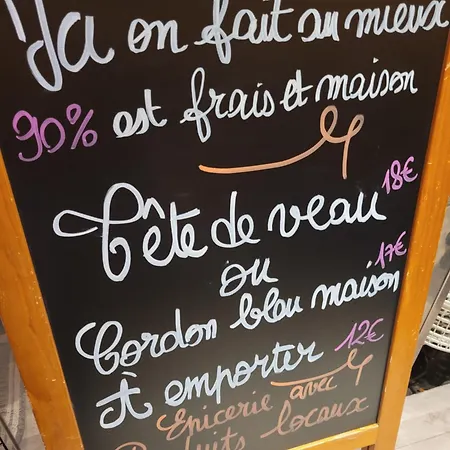 Ja on fait au mieux
90% est frais et maison
Tête de veau 18€
ou 17€
Cordon bleu maison
À emporter 12€
Epicerie avec
Produits locaux